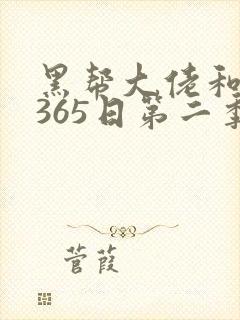 黑帮大佬和
365日第二季
菅葭